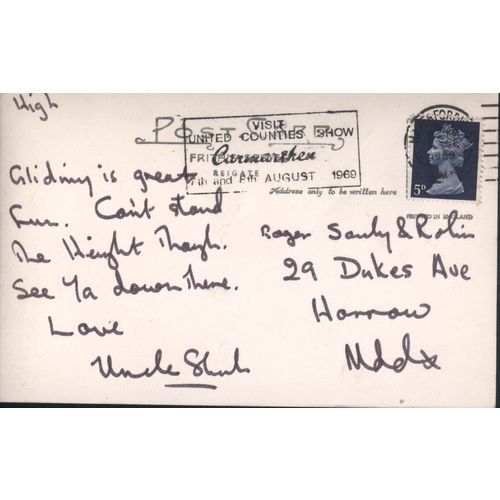 High
POST CARD
VISIT
UNITED COUNTIES SHOW
Carmarthen
FRITH
REIGATE
7th and 8th AUGUST 1969
Address only to be written here
5D
PRINTED IN ENGLAND
Gliding is great
fun. Can't stand
The Height Though.
See Ya down There.
Love
Uncle
Roger Sandy & Robin
29 Dukes Ave
Harrow
Mddx